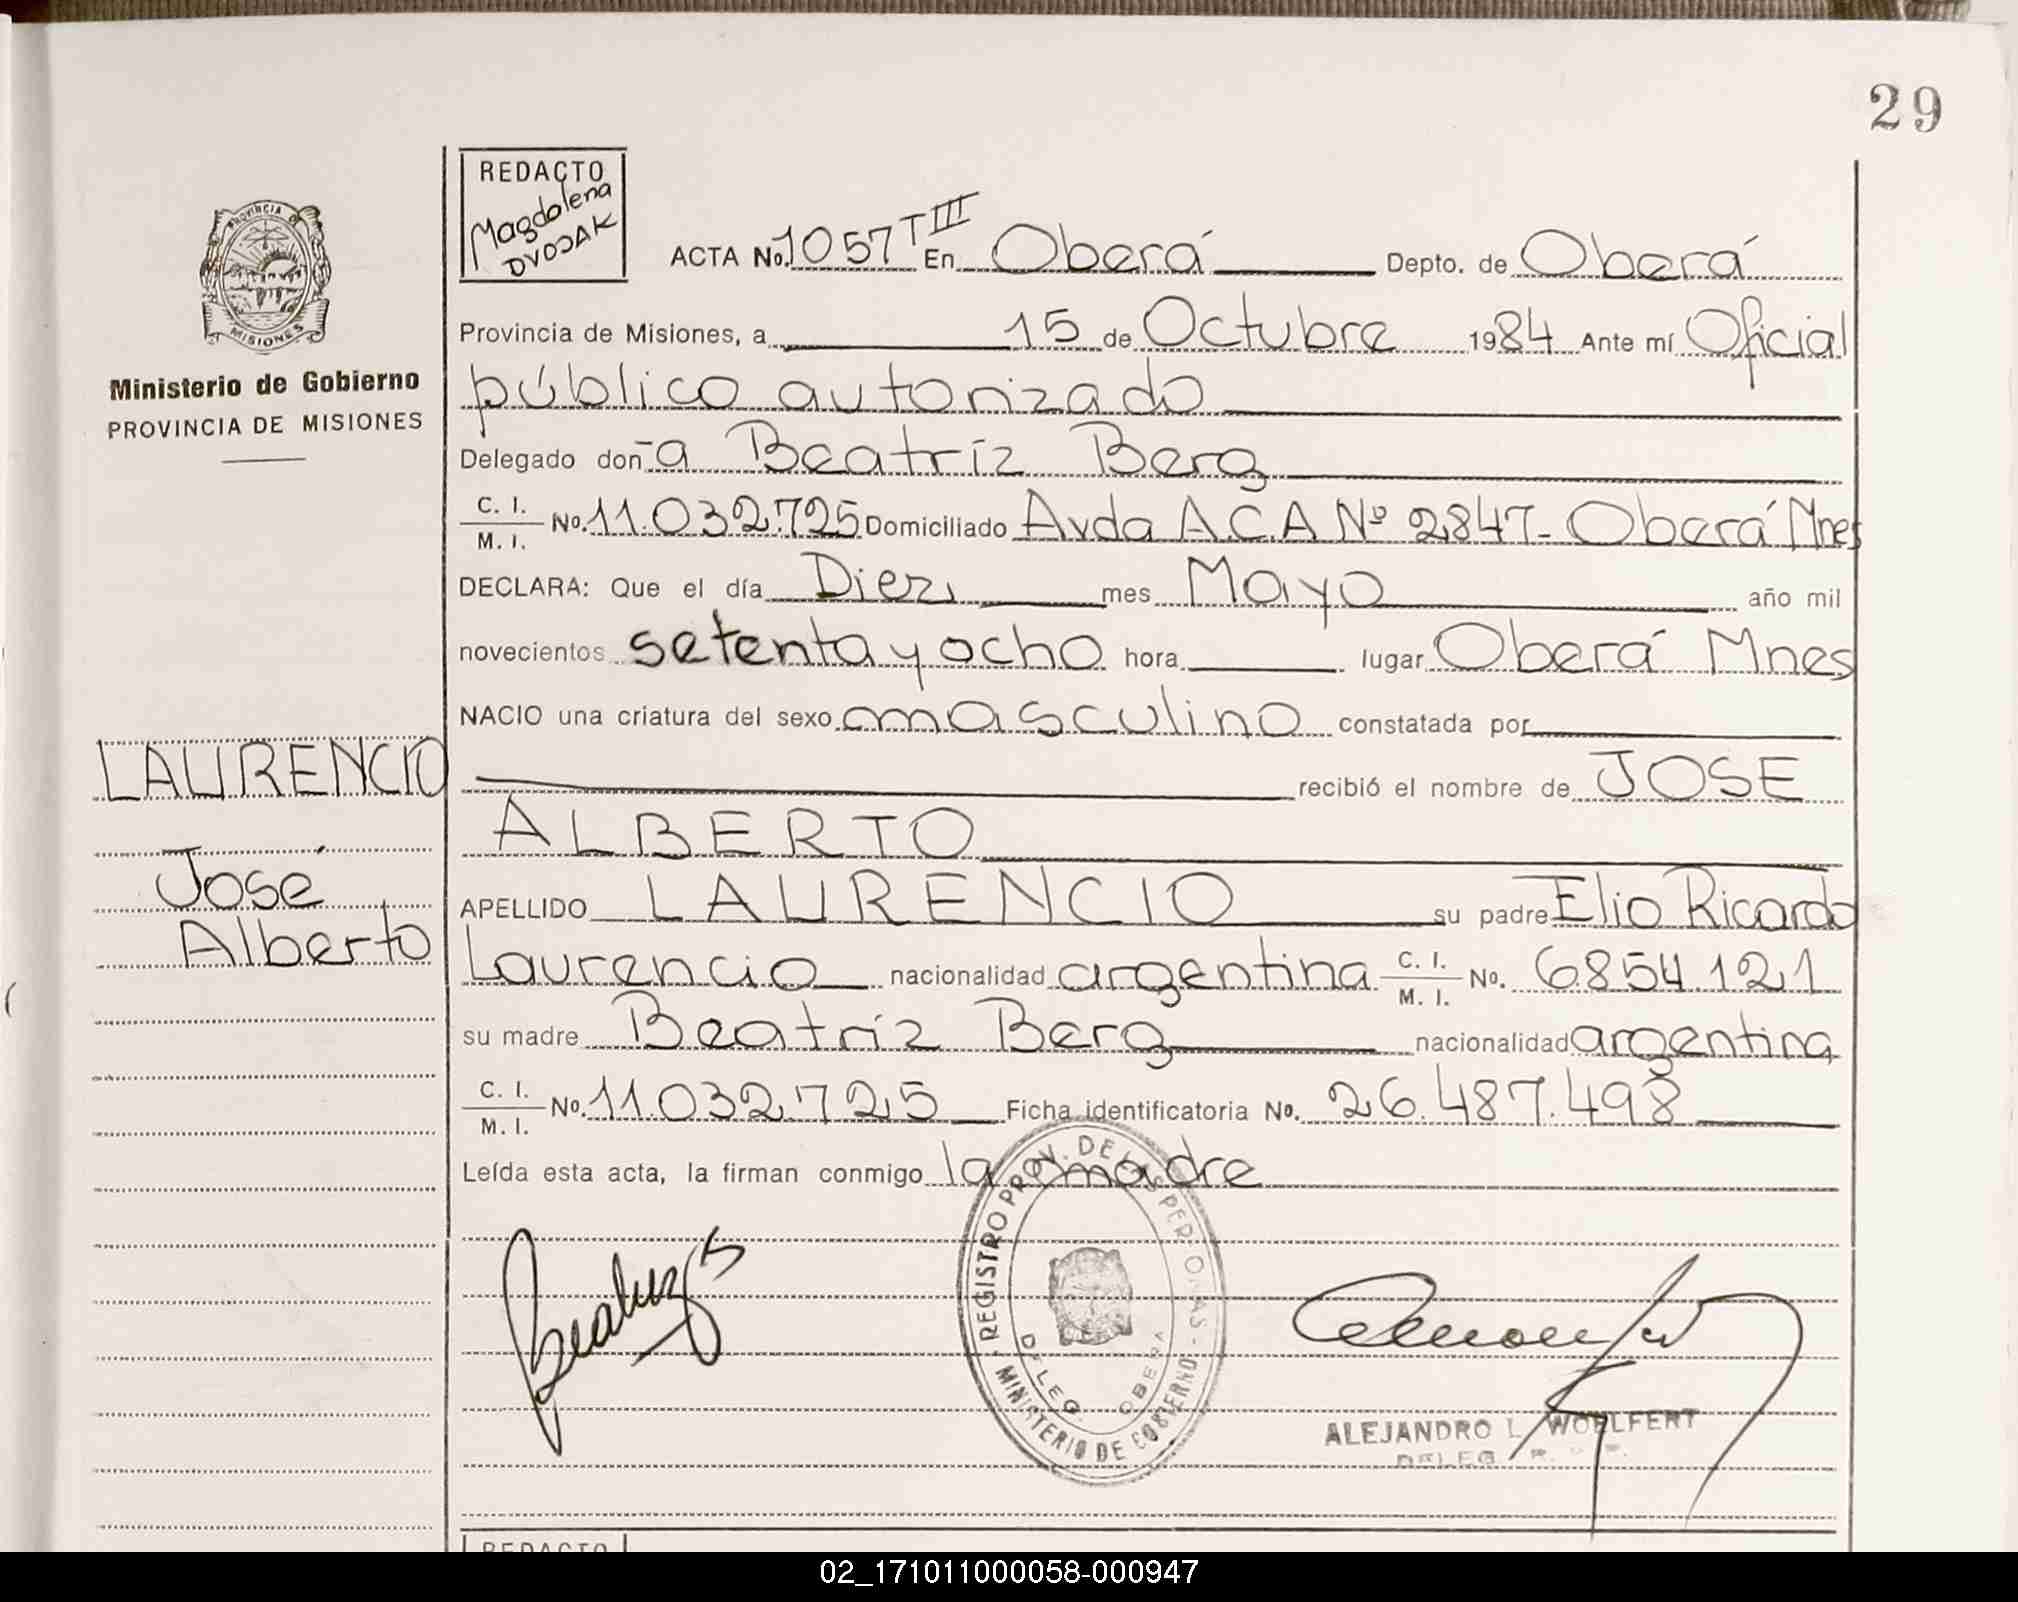 29
REDACTO
Magdalena
DVOJAK
PROVINCIA DE
MISIONES
Ministerio de Gobierno
PROVINCIA DE MISIONES
ACTA No. 1057 T III En Oberá Depto. de Oberá
Provincia de Misiones, a 15 de Octubre 1984 Ante mí Oficial
público autorizado
Delegado don~a Beatríz Berg
C. I. / M. I. No. 11.032.725 Domiciliado Avda A.C.A Nº 2847- Oberá Mnes
DECLARA: Que el día Diez mes Mayo año mil
novecientos setenta y ocho hora lugar Oberá Mnes
NACIO una criatura del sexo masculino constatada por
recibió el nombre de JOSE
ALBERTO
APELLIDO LAURENCIO su padre Elio Ricardo
Laurencio nacionalidad argentina C. I. / M. I. No. 6.854.121
su madre Beatríz Berg nacionalidad argentina
C. I. / M. I. No. 11.032.725 Ficha identificatoria No. 26.487.498
Leída esta acta, la firman conmigo la madre
LAURENCIO
José
Alberto
Beatriz B
REGISTRO PROV. DE LAS PERSONAS - MINISTERIO DE GOBIERNO
DELEG. OBERA
ALEJANDRO L. WOELFERT
DELEG.
REDACTO
02_171011000058-000947